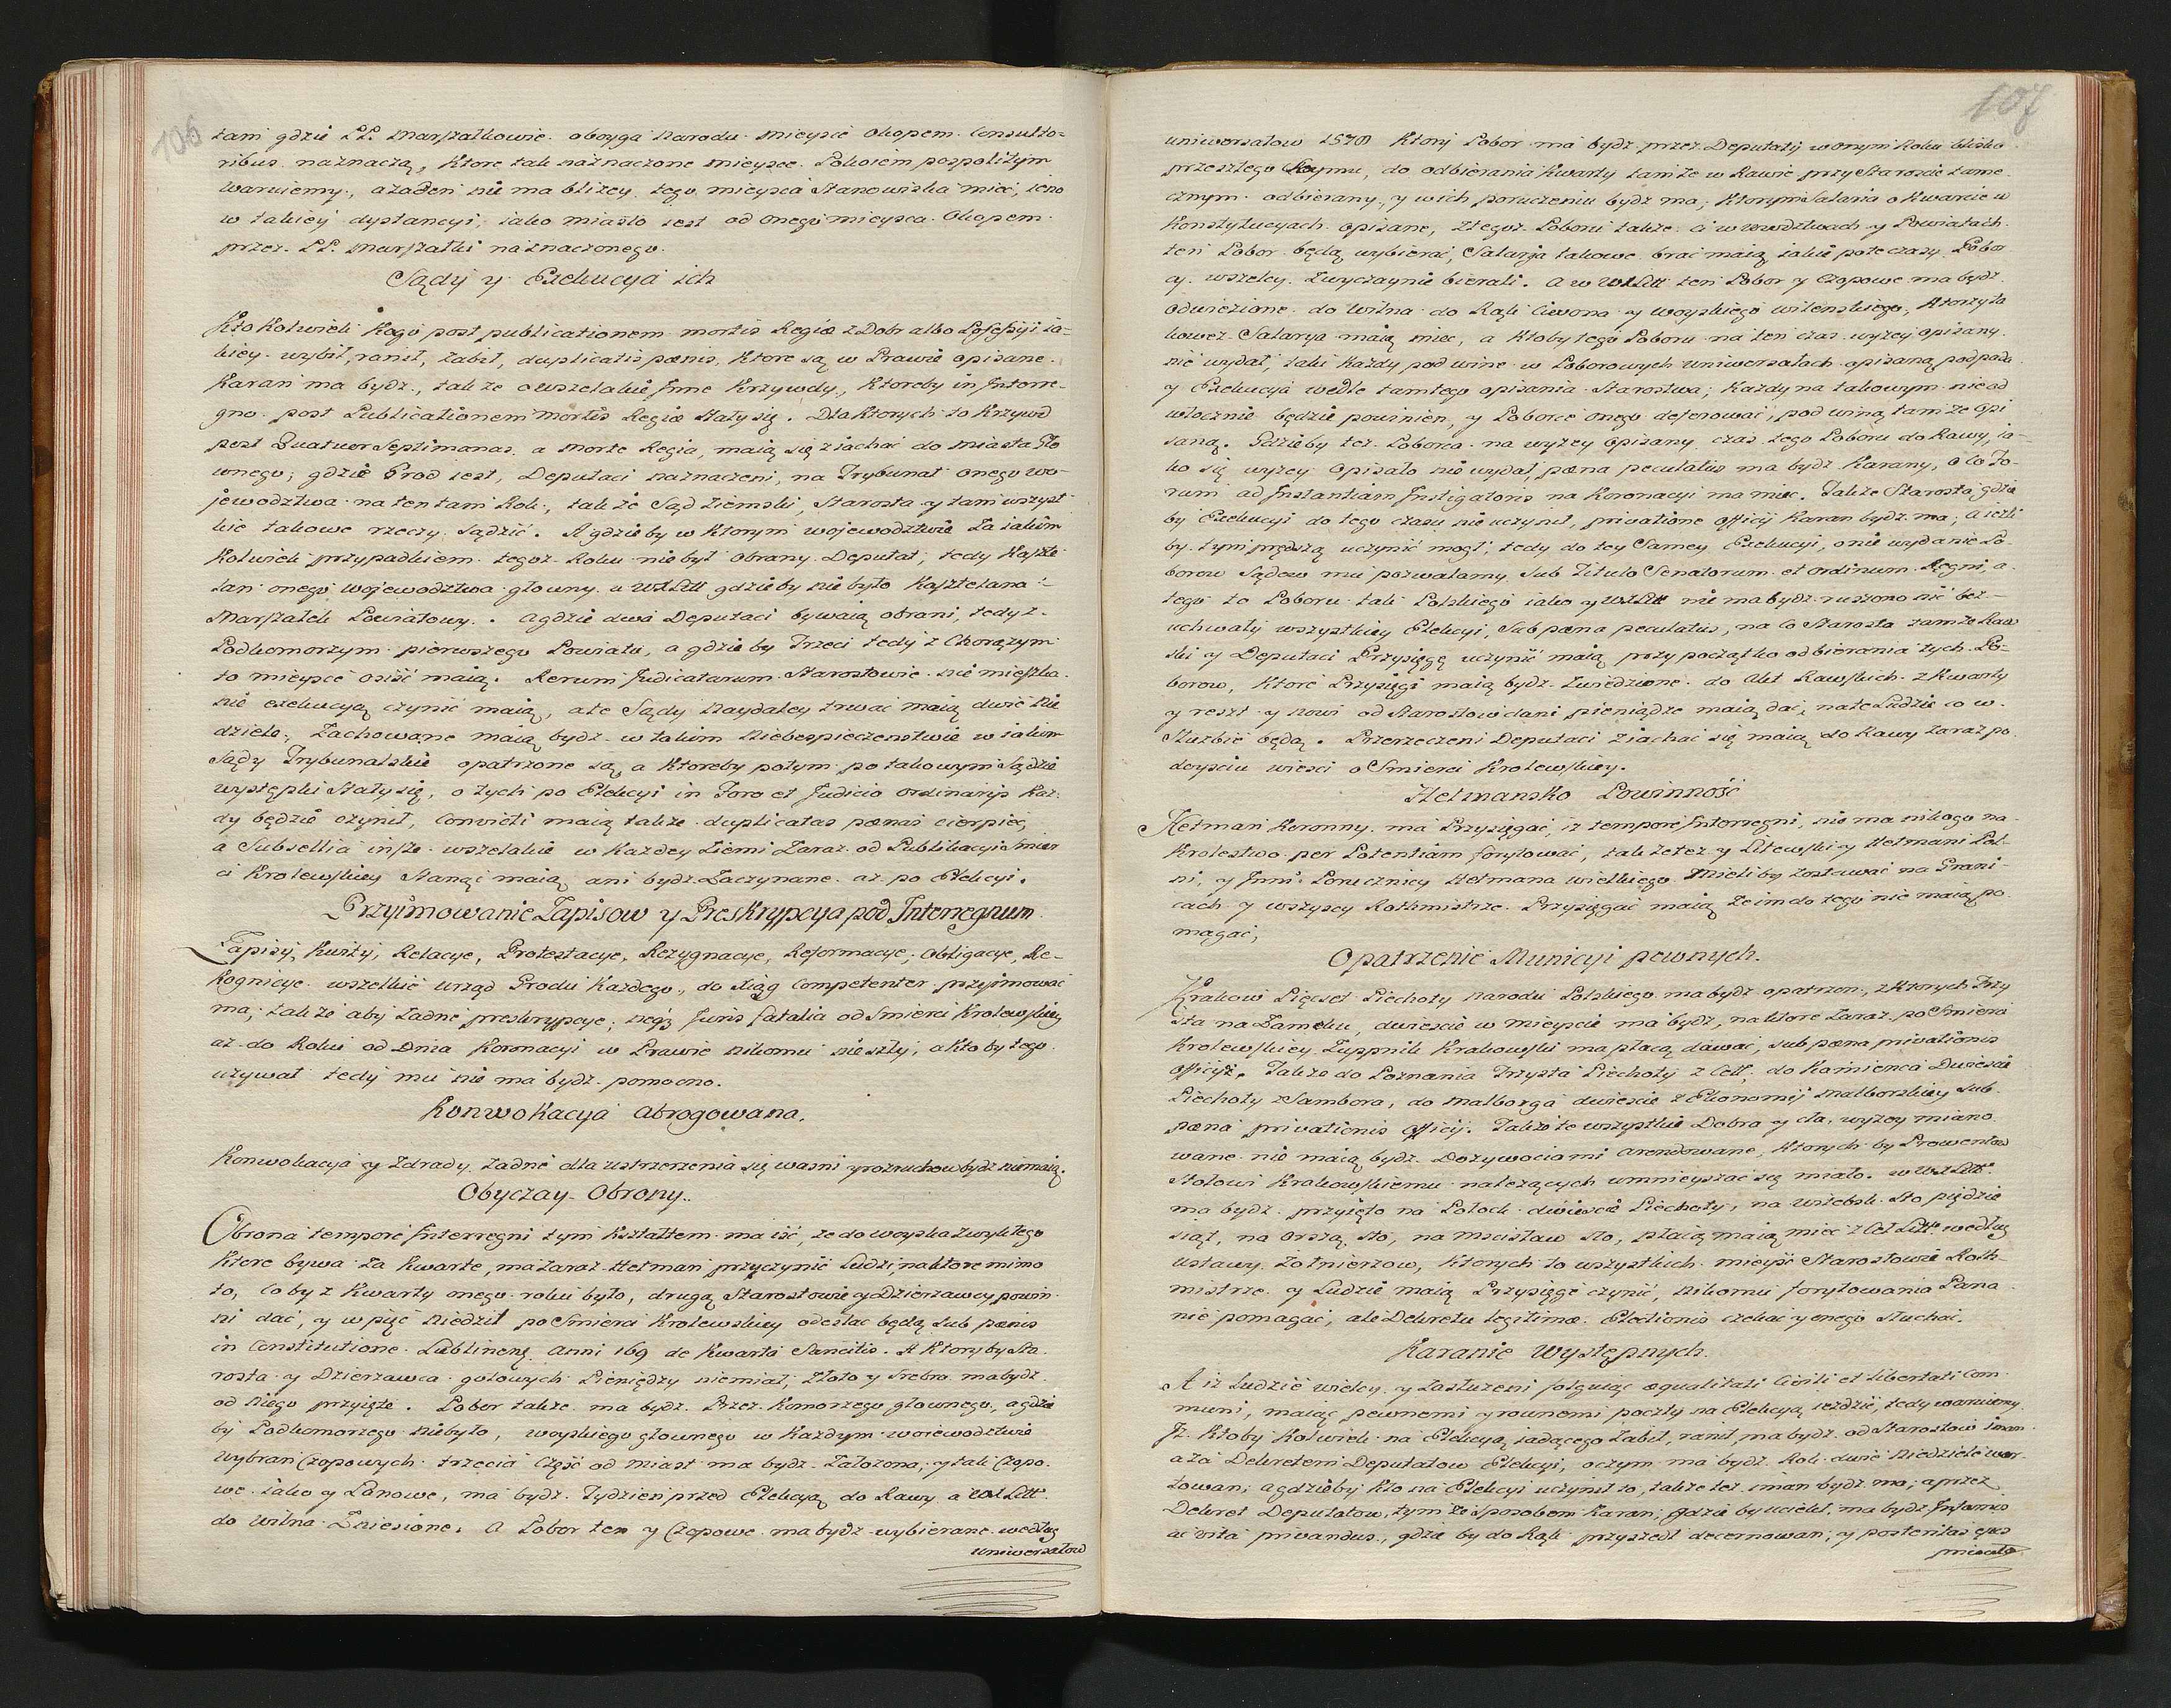 106
tam gdzie PP. Marszałkowie oboyga Narodu mieysce Okopem Consulto=
ribus naznaczą, Ktore tak naznaczone mieysce Pokoiem pospolitym
waruiemy, a żaden nie ma bliżey tego mieysca Stanowiska mieć, ieno
w takiey dystancyi, iako miasto iest od onego mieysca Okopem
przez PP. Marszałki naznaczonego.
Sądy y Exekucya ich
Kto Kolwiek Kogo post publicationem mortis Regiæ z Dobr albo Possessyi ia=
kiey wybił, ranił, zabił, duplicatis pœnis, Ktore są w Prawie opisane
Karan ma bydz, także o wszelakie Inne Krzywdy, Ktoreby in Interre=
gno post Publicationem mortis Regiæ stały się. Dla Ktorych to Krzywd
post Quatuor Septimanas a morte Regia, maią się ziachać do miasta Głо
wnego, gdzie Grod iest, Deputaci naznaczeni, na Trybunał onego wo=
jewodztwa na ten tam Rok, także Sąd Ziemski, Starosta y tam wszyst
kie takowe rzeczy sądzić. A gdzie by w Ktorym wojewodztwie za iakim
Kolwiek przypadkiem tegoż Roku nie był obrany Deputat, tedy Kaszte
lan onego wojewodztwa głowny a w WXLitt gdzieby nie było Kasztelana
Marszałek Powiatowy. A gdzie dwa Deputaci bywaią obrani, tedy z
Podkomorzym pierwszego Powiatu, a gdzie by Trzeci tedy z Chorązym
to mieysce osiść maią. Rerum Judicatarum Starostowie nie mieszka
nie exekucyą czynić maią, ale Sądy naydaley trwać maią dwie Nie
dziele, Zachowane maią bydz w takim niebespieczenstwie w iakim
Sądy Trybunalskie opatrzone są, a Ktoreby potym po takowym Sądzie
występki stały się, o tych po Elekcyi in Foro et Judicio ordinarijs Kaz=
dy będzie czynił, Convicti maią także duplicatas pœnas cierpieć,
a Subsellia insze wszelakie w Kazdey Ziemi Zaraz od Publikacyi Smier
ci Krolewskiey Stanąć maią ani bydz Zaczynane az po Elekcyi.
Przyimowanie Zapisow y Preskrypcya pod Interregnum
Zapisy, Kwity, Relacye, Protestacye, Rezygnacye, Reformacye, Obligacye, Re=
kognicye wszelkie urząd Grodu Kazdego, do Xiąg Competenter przyjmować
ma, tak że aby żadne preskrypcye, neg3 Juris fatalia od Smierci Krolewskiey
az do Roku od Dnia Koronacyi w Prawie nikomu nie szły, a kto by tego
używał tedy mu nie ma bydz pomocno.
Konwokacya Abrogowana.
Konwokacya y Zdrady żadne dla ustrzerzenia się waśni y rozruchow bydz nie maią.
Obyczay Obrony.
Obrona tempore Interregni tym Kształtem ma iść, że do woyska zwykłego
Ktore bywa za Kwartę, ma zaraz Hetman przyczynić Ludzi, na ktore mimo
to, co by z Kwarty onego roku było, drugą Starostowie y Dzierzawcy powin
ni dać, y w pięć niedziel po Smierci Krolewskiey odesłać będą sub pœnis
in Constitutione Lublinenę. anni 169 de Kwarta Sancitis. A Ktory by Sta
rosta y Dzierzawca gotowych Pieniędzy niemiał, Złoto y Srebro ma bydz
od niego przyięte. Pobor także ma bydz Przez Komorzego głownego, a gdzie
by Podkomorzego niebyło, woyskiego głownego w Kazdym woiewodztwie
wybran Czopowych trzecia Część od miast ma bydz Założona, y tak Czopo
we iako y Łanowe, ma bydz Tydzien przed Elekcyą do Rawy a w WXLitt
do Wilna Zniesione. A Pobor ten y Czopowe ma bydz wybierane według
uniwersałow
107
uniwersałow 1578 Ktory Pobor ma bydz przez Deputaty w onym Roku blisko
przeszłego Seymu, do odbierania Kwarty tamże w Rawie przy Staroscie tame
cznym odbierany, y w ich poruczeniu bydz ma, Ktorym Salaria o Kwarcie w
Konstytucyach opisane, Z tegoż Poboru także. Ci w wwodztwach y Powiatach
ten Pobor będą wybierać, Salarja takowe brać maią iakie pote czasy Pobor
cy wszelcy Zwyczaynie bierali. A w WXLitt ten Pobor y Czopowe ma bydz
odwiezione do Wilna do Rąk Ciwona y woyskiego wilenskiego, Ktorzy ta
kowez Salarya maią mieć, a Ktoby tego Poboru na ten czas wyzey opisany
nie wydał, taki Kazdy pod winę w Poborowych uniwersałach opisaną podpada
y Exekucya wedle tamtego opisania Starostwa, Kazdy na takowym nie od
włocznie będzie powinien, y Poborce onego deferować, pod winą tamże opi
saną. Gdzie by też Poborca na wyzey opisany czas tego Poboru do Rawy, ia=
ko się wyzey opisało nie wydał, pœna peculatus ma bydz Karany, o co Fo=
rum ad Instantiam Instigatoris na Koronacyi ma mieć. Także Starosta gdzie
by Exekucyi do tego czasu nie uczynił, privatione officij Karan bydz ma, a iezli
by tym prędszą uczynić mogł, tedy do tey Samey Exekucyi, o nie wydanie Po=
borow Sądow mu pozwalamy sub Titulo Senatorum et Ordinum Regni, a
tego to Poboru tak Polskiego iako y WXLitt nie ma bydz ruszono nic bez=
uchwały wszystkiey Elekcyi, Sub pœna peculatus, na co Starosta tamże Raw
ski y Deputaci Przysięgę uczynić maią przy początko odbierania tych Po=
borow, Ktore Przysięgi maią bydz Zwiedzione do Akt Rawskich z Kwarty
y reszt y nowi od Starostow dani pieniądze maią dać, na te Ludzie co w
Służbie będą. Przerzeczeni Deputaci Ziachać się maią do Rawy Zaraz po
doysciu wiesci o Smierci Krolewskiey.
Hetmansko Powinność
Hetman Koronny ma Przysięgać, iz tempore Interregni, nie ma nikogo na
Krolestwo per Potentiam forytować, tak że też y Litewski y Hetmani Pol=
ni, y Inni Porucznicy Hetmana wielkiego Mieli by Zostawać na Grani=
cach y wszyscy Rothmistrze Przysięgać maią że im do tego nie maią po
magać,
Opatrzenie Municyi pewnych.
Krakow Pięcset Piechoty narodu Polskiego ma bydz opatrzon, z Ktorych Trzy
sta na Zamku, dwiescie w miescie ma bydz, na ktore Zaraz po Smierci
Krolewskiey Żuppnik Krakowski ma płacą dawać, sub pœna privationis
officij. Także do Poznania Trzysta Piechoty z Ceł, do Kamienca Dwiescie
Piechoty z Sambora, do Malborga dwiescie z Ekonomij Malborskiey sub
pœna privationis officij. Także te wszystkie Dobra y cła, wyzey miano
wane nie maią bydz Dozywociami Arendowane, Ktorych by Prowentow
Stołowi Krakowskiemu należących umnieyszać się miało. w WXLitt
ma bydz przyięto na Połock dwiescie Piechoty, na Witebsk Sto pięćdzie
siąt, na Orszą sto, na Mscisław sto, płacą maią mieć z Ceł Litt. według
ustawy Żołnierzow, Ktorych to wszystkich mieysc Starostowie Roth=
mistrze y Ludzie maią Przysięgę czynić, nikomu forytowania Pana
nie pomagać, ale Dekretu legitimæ Electionis czekać y onego słuchać.
Karanie Występnych.
A iż Ludzie wielcy y Zasłużeni folguiąc æqualitati Civili et libertati Com
muni, maiąc pewnemi y rownemi poczty na Elekcyą ieździć, tedy waruiemy
Iż Ktoby Kolwiek na Elekcyą iadącego Zabił, ranił, ma bydz od Starostow iman
a za Dekretem Deputatow Elekcyi, o czym ma bydz Rok dwie Niedziele wer
towan, a gdzieby Kto na Elekcyi uczynił to, także też iman bydz ma, a przez
Dekret Deputatow, tym że sposobem Karan, gdzie by uciekł, ma bydz Infamis
ac vita privandus, gdzie by do Rąk przyszedł decernowan, y posteritas ejus